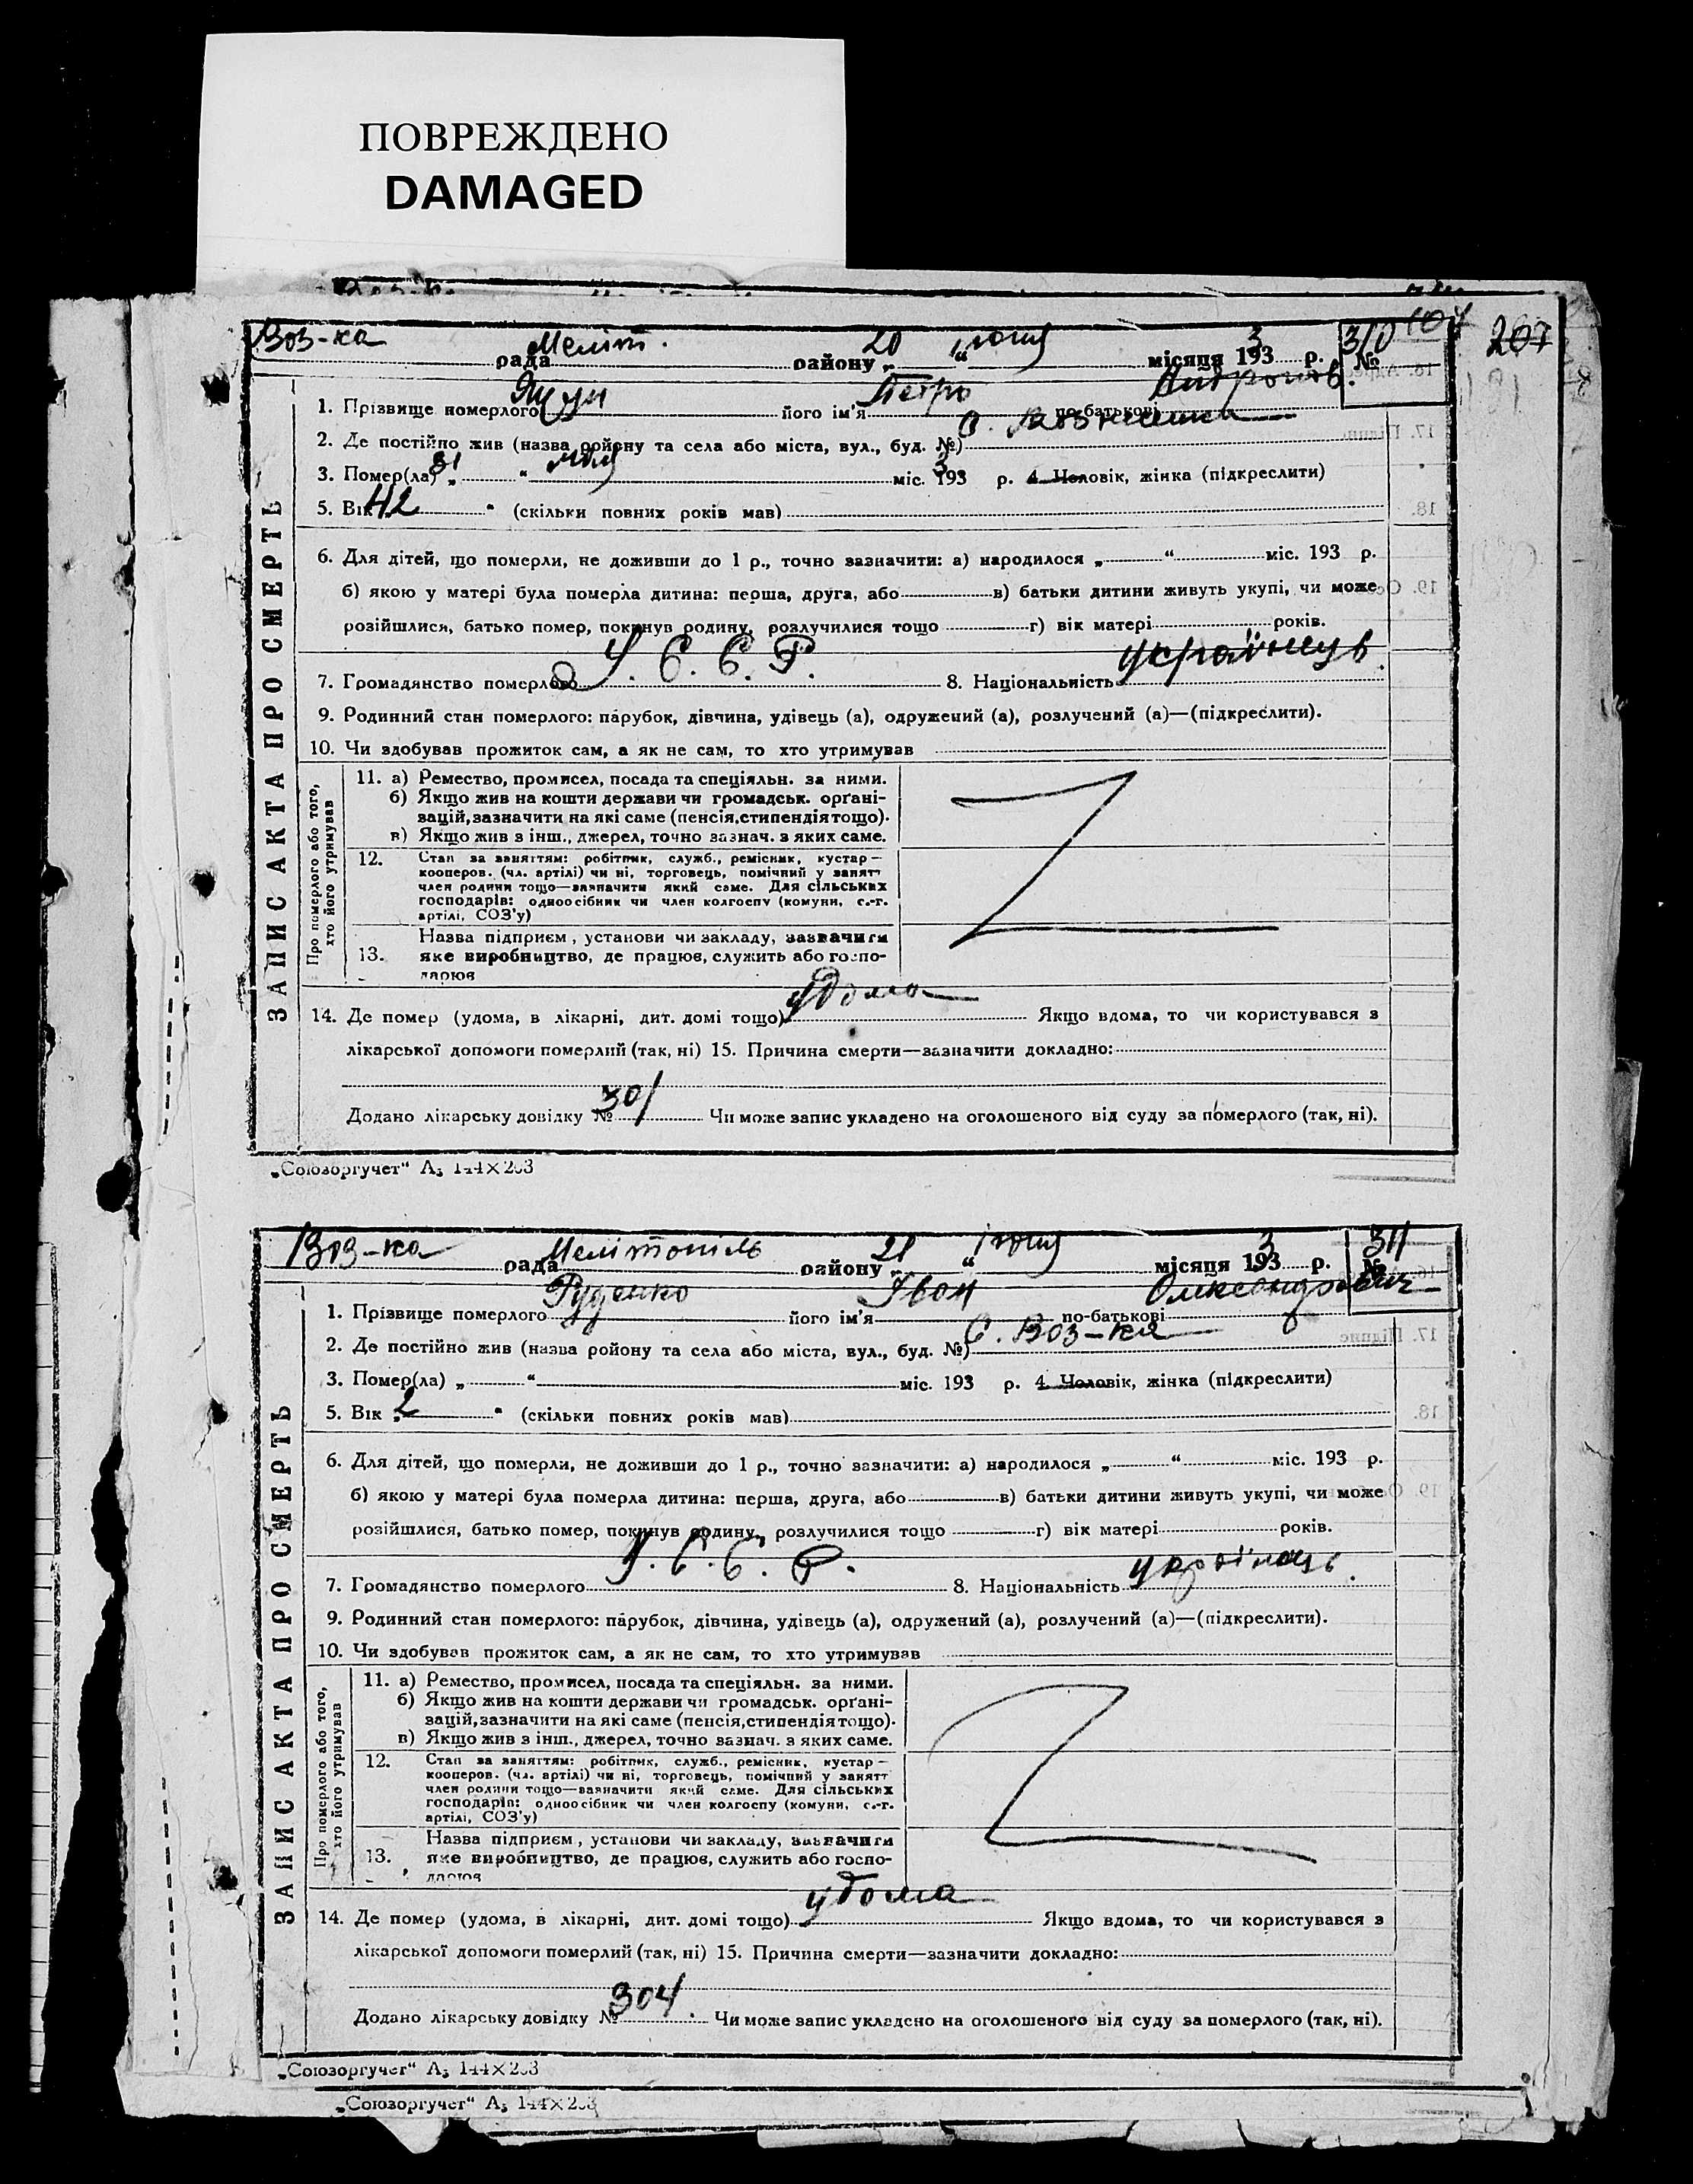 ПОВРЕЖДЕНО
DAMAGED
107
207
Воз-ка рада Меліт. району „20“ іюня місяця 1933 р. № 310
ЗАПИС АКТА ПРО СМЕРТЬ
1. Прізвище померлого його ім'я Петро по-батькові
2. Де постійно жив (назва ройону та села або міста, вул., буд. №) С. Вознесенка
3. Помер(ла) „31“ мая міс. 1933 р. 4. Чоловік, жінка (підкреслити)
5. Вік „42“ (скільки повних років мав)
6. Для дітей, що померли, не доживши до 1 р., точно зазначити: а) народилося „ “ міс. 193 р.
б) якою у матері була померла дитина: перша, друга, або в) батьки дитини живуть укупі, чи може
розійшлися, батько помер, покинув родину, розлучилися тощо г) вік матері років.
7. Громадянство померлого У.С.С.Р. 8. Національність українець.
9. Родинний стан померлого: парубок, дівчина, удівець (а), одружений (а), розлучений (а)—(підкреслити).
10. Чи здобував прожиток сам, а як не сам, то хто утримував
Про померлого або того, хто його утримував
11. а) Ремество, промисел, посада та спеціяльн. за ними.
б) Якщо жив на кошти держави чи громадськ. орґані-
зацій, зазначити на які саме (пенсія, стипендія тощо).
в) Якщо жив з інш., джерел, точно зазнач. з яких саме.
12. Стан за заняттям: робітник, служб., ремісник, кустар—
кооперов. (чл. артілі) чи ні, торговець, помічний у занятт
член родини тощо—зазначити який саме. Для сільських
господарів: одноосібник чи член колгоспу (комуни, с.-г.
артілі, СОЗ'у)
13. Назва підприєм, установи чи закладу, зазначити
яке виробництво, де працює, служить або госпо-
дарює
14. Де помер (удома, в лікарні, дит. домі тощо) удома Якщо вдома, то чи користувався з
лікарської допомоги померлий (так, ні) 15. Причина смерти—зазначити докладно:
Додано лікарську довідку № 301 Чи може запис укладено на оголошеного від суду за померлого (так, ні).
„Союзоргучет“ А₅ 144×203
Воз-ка рада Мелітопіль району „21“ іюня місяця 1933 р. № 311
ЗАПИС АКТА ПРО СМЕРТЬ
1. Прізвище померлого Руденко його ім'я Іван по-батькові Олександрович
2. Де постійно жив (назва ройону та села або міста, вул., буд. №) С. Воз-ка
3. Помер(ла) „ “ міс. 193 р. 4. Чоловік, жінка (підкреслити)
5. Вік „2“ (скільки повних років мав)
6. Для дітей, що померли, не доживши до 1 р., точно зазначити: а) народилося „ “ міс. 193 р.
б) якою у матері була померла дитина: перша, друга, або в) батьки дитини живуть укупі, чи може
розійшлися, батько помер, покинув родину, розлучилися тощо г) вік матері років.
7. Громадянство померлого У.С.С.Р. 8. Національність українець.
9. Родинний стан померлого: парубок, дівчина, удівець (а), одружений (а), розлучений (а)—(підкреслити).
10. Чи здобував прожиток сам, а як не сам, то хто утримував
Про померлого або того, хто його утримував
11. а) Ремество, промисел, посада та спеціяльн. за ними.
б) Якщо жив на кошти держави чи громадськ. орґані-
зацій, зазначити на які саме (пенсія, стипендія тощо).
в) Якщо жив з інш., джерел, точно зазнач. з яких саме.
12. Стан за заняттям: робітник, служб., ремісник, кустар—
кооперов. (чл. артілі) чи ні, торговець, помічний у занятт
член родини тощо—зазначити який саме. Для сільських
господарів: одноосібник чи член колгоспу (комуни, с.-г.
артілі, СОЗ'у)
13. Назва підприєм, установи чи закладу, зазначити
яке виробництво, де працює, служить або госпо-
дарює
14. Де помер (удома, в лікарні, дит. домі тощо) удома Якщо вдома, то чи користувався з
лікарської допомоги померлий (так, ні) 15. Причина смерти—зазначити докладно:
Додано лікарську довідку № 304. Чи може запис укладено на оголошеного від суду за померлого (так, ні).
„Союзоргучет“ А₅ 144×203
„Союзоргучет“ А₅ 144×203